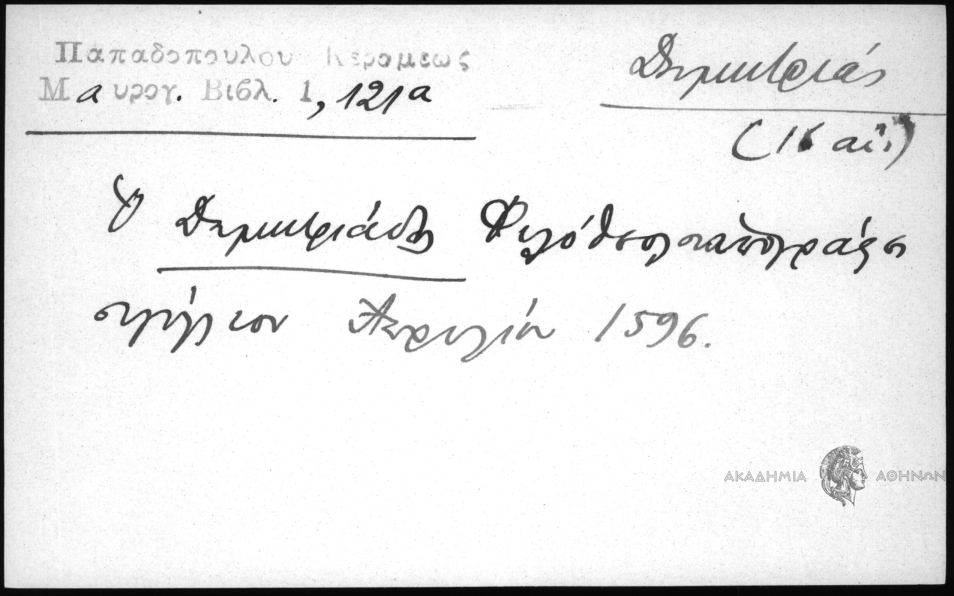 Παπαδοπουλου Κεραμεως
Μαυρογ. Βιβλ. 1, 121α
Δημητριάς
(16 αἰ.)
Ὁ Δημητριάδος Φιλόθεος υπογράφει
σιγίλλιον Απριλίου 1596.
ΑΚΑΔΗΜΙΑ ΑΘΗΝΩΝ